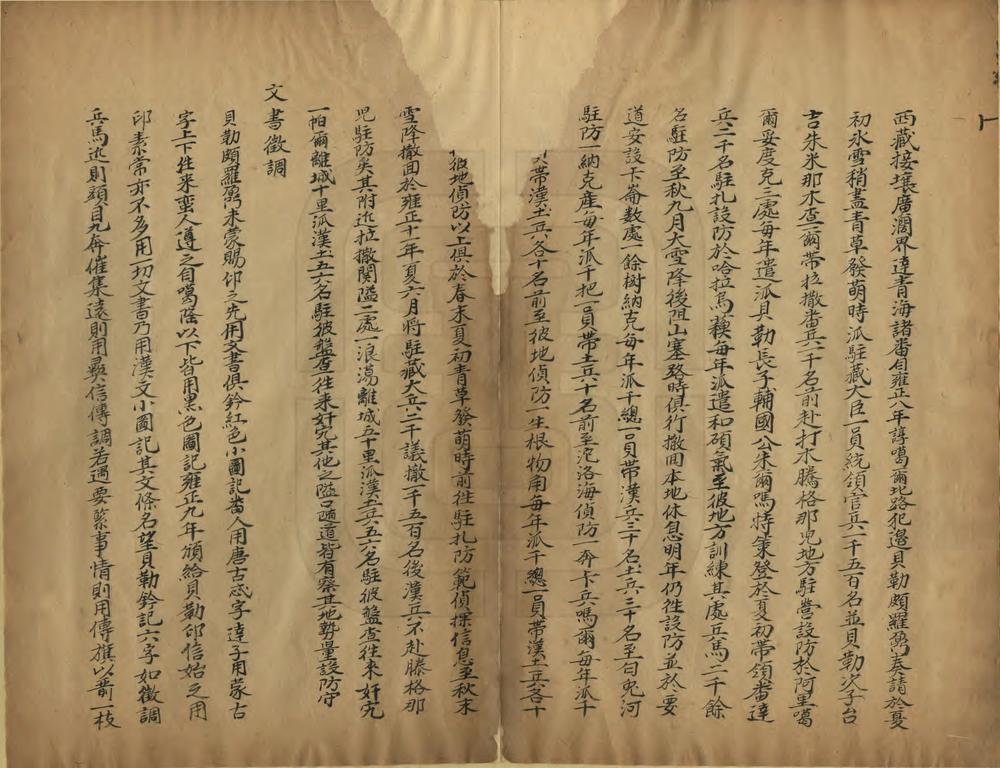 西藏接壤廣濶界達青海諸畨自雍正八年諄噶爾地路犯邉貝勒頗羅鼐奏請於夏
初氷雪稍盡青草發萌時派駐藏大臣一員統領官兵一千五百名並貝勒次子台
吉朱米那木查爾帶拉撒畨兵二千名前赴打木騰格那児地方駐營設防於阿里噶
爾妥度克三處每年遣派貝勒長子輔國公朱爾嗎特策登於夏初帶領畨達
兵二千名駐扎設防於哈拉烏蘓每年派遣和碩氣至彼地方訓練其處兵馬二千餘
名駐防至秋九月大雪降後阻山塞路時俱行撤回本地休息明年仍徃設防並於要
道安設卡崙数處一餘樹納克每年派千總一員帶漢兵三十名土兵三十名至白兎河
駐防一納克產每年派千把一員帶土兵十名前至沱洛海偵防一奔卡兵嗎爾每年派千
帶漢土兵各十名前至彼地偵防一生根物角每年派千總一員帶漢土兵各十
彼地偵防以上俱於春末夏初青草發萌時前徃駐扎防範偵探信息至秋末
雪降撤囬於雍正十一年夏六月將駐藏大兵二千議撤千五百名後漢兵不赴滕格那
児駐防矣其附近拉撒関隘二處一浪蕩離城五十里派漢土兵五六名駐彼盤查徃來奸宄
一帕爾離城十里派漢土五六名駐彼盤查徃来奸宄其他之隘口通道皆有察其地勢量設防守
文書徵調
貝勒頗羅鼐未蒙賜卭之先用文書俱鈐紅色小圖記畨人用唐古忒字達子用蒙古
字上下徃来蛮人遵之自噶隆以下皆用黒色圖記雍正九年頒給貝勒卭信始之用
卭素常亦不多用一切文書乃用漢文小圖記其文條名望貝勒鈐記六字如徵調
兵馬近則頭目九奔催集遠則用奬信傳調若遇要緊事情則用傳旗以箭一枝